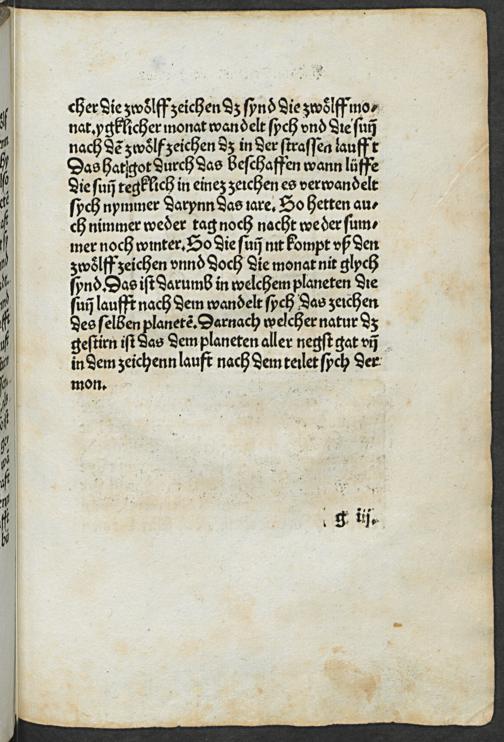 cher die zwölff zeichen dz synd die zwölff mo⸗
nat, ygklicher monat wandelt sych vnd die suñ
nach dē zwölf zeichen dz in der strassen laufft
Das hat got durch das beschaffen wann lüffe
die suñ tegklich in einez zeichen es verwandelt
sych nymmer darynn das iare. So hetten au⸗
ch nimmer weder tag noch nacht weder sum⸗
mer noch winter. So die suñ nit kompt vß den
zwölff zeichen vnnd doch die monat nit glych
synd. Das ist darumb in welchem planeten die
suñ laufft nach dem wandelt sych das zeichen
des selben planetē. Darnach welcher natur dz
gestirn ist das dem planeten aller negst gat vñ
in dem zeichenn lauft nach dem teilet sych der
mon.
g iij.